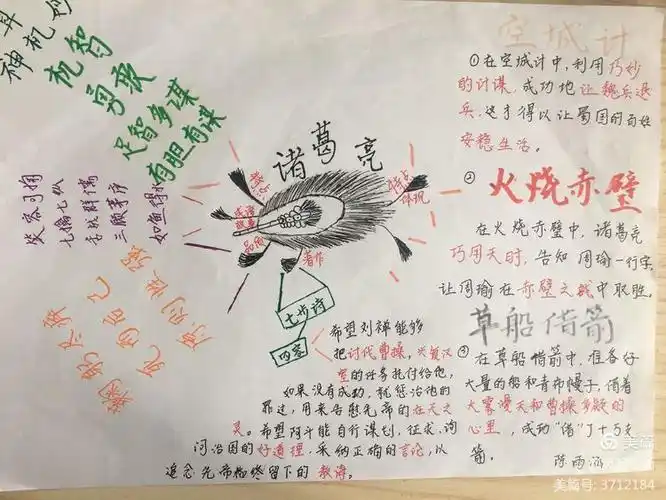 神机妙算
机智
勇敢
足智多谋
有胆有谋
诸葛亮
七擒七纵
舌战群儒
三顾茅庐
如鱼得水
特点
体现
著作
七步诗
内容
希望刘禅能够
把讨代曹操，兴复汉
室的任务托付给他，
如果没有成功，就惩治他的
罪过，用来告慰先帝的在天之
灵。希望阿斗能自行谋划，征求、询
问治国的好道理，采纳正确的言论，以
追念先帝临终留下的教诲。
空城计
①在空城计中，利用巧妙
的计谋，成功地让魏兵退
兵，这才得以让蜀国的百姓
安稳生活。
②
火烧赤壁
在火烧赤壁中，诸葛亮
巧用天时，告知周瑜一行字，
让周瑜在赤壁之战中取胜。
草船借箭
③在草船借箭中，准备好
大量的船和青布幔子，借着
大雾漫天和曹操多疑的
心里，成功“借”了十万支
箭。
美篇
美篇号：3712184